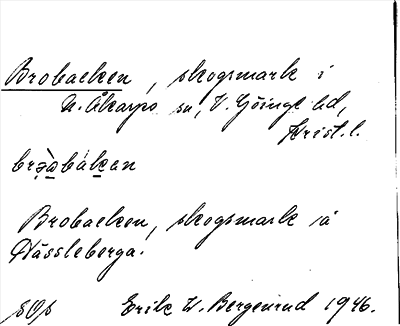 Brobacken, skogsmark i
N. Åkarps sn, V. Göinge hd,
Krist. l.
Brobacken, skogsmark på
Nässleberga.
Erik W. Bergenrud 1946.